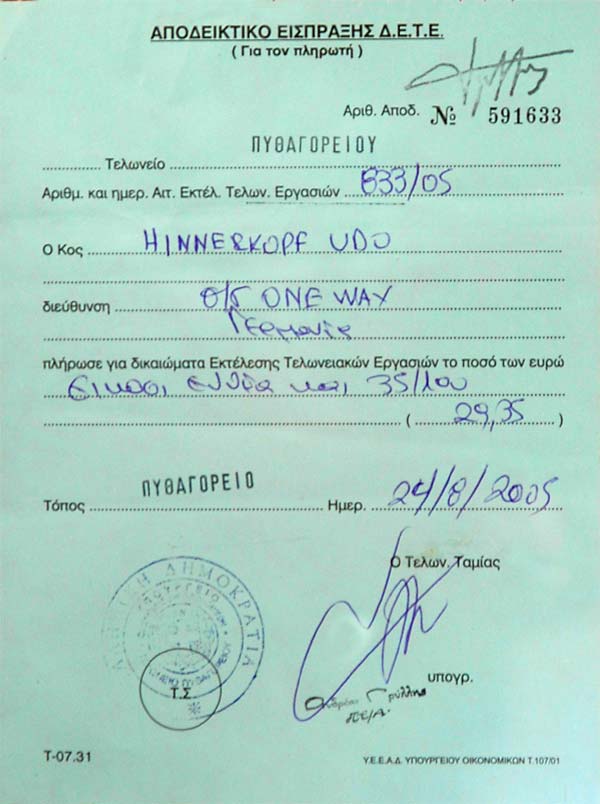 ΑΠΟΔΕΙΚΤΙΚΟ ΕΙΣΠΡΑΞΗΣ Δ.Ε.Τ.Ε.
( Για τον πληρωτή )
Αριθ. Αποδ. № 591633
ΠΥΘΑΓΟΡΕΙΟΥ
Τελωνείο
Αριθμ. και ημερ. Αιτ. Εκτέλ. Τελων. Εργασιών 633/05
Ο Κος HINNERKOPF UDO
διεύθυνση Θ/Γ ONE WAY
Γερμανία
πλήρωσε για δικαιώματα Εκτέλεσης Τελωνειακών Εργασιών το ποσό των ευρώ
είκοσι εννέα και 35/100
( 29,35 )
Τόπος ΠΥΘΑΓΟΡΕΙΟ Ημερ. 24/8/2005
Ο Τελων. Ταμίας
ΕΛΛΗΝΙΚΗ ΔΗΜΟΚΡΑΤΙΑ
Τ.Σ.
υπογρ.
Τ-07.31
Υ.Ε.Ε.Α.Δ. ΥΠΟΥΡΓΕΙΟΥ ΟΙΚΟΝΟΜΙΚΩΝ Τ.107/01